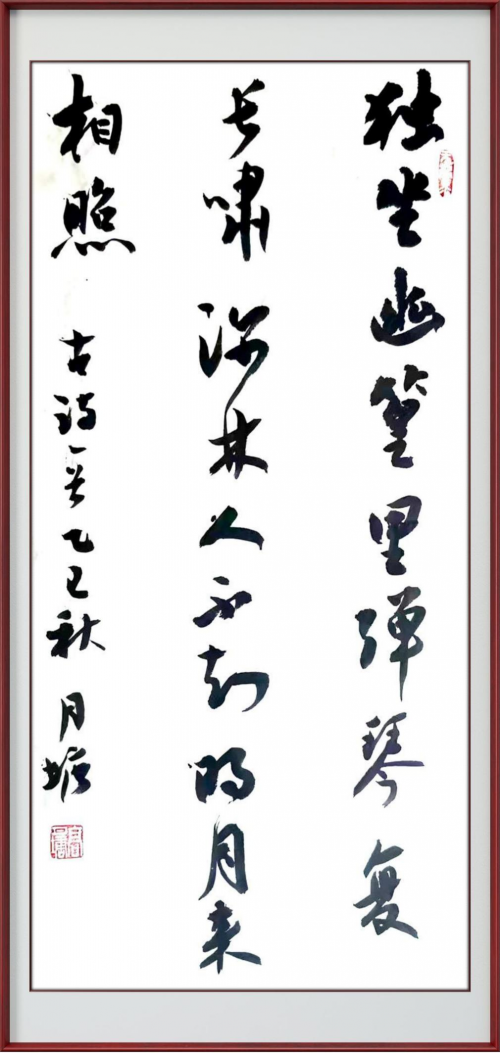 独坐幽篁里弹琴复
长啸深林人不知明月来
相照 古诗一首乙巳秋月塘